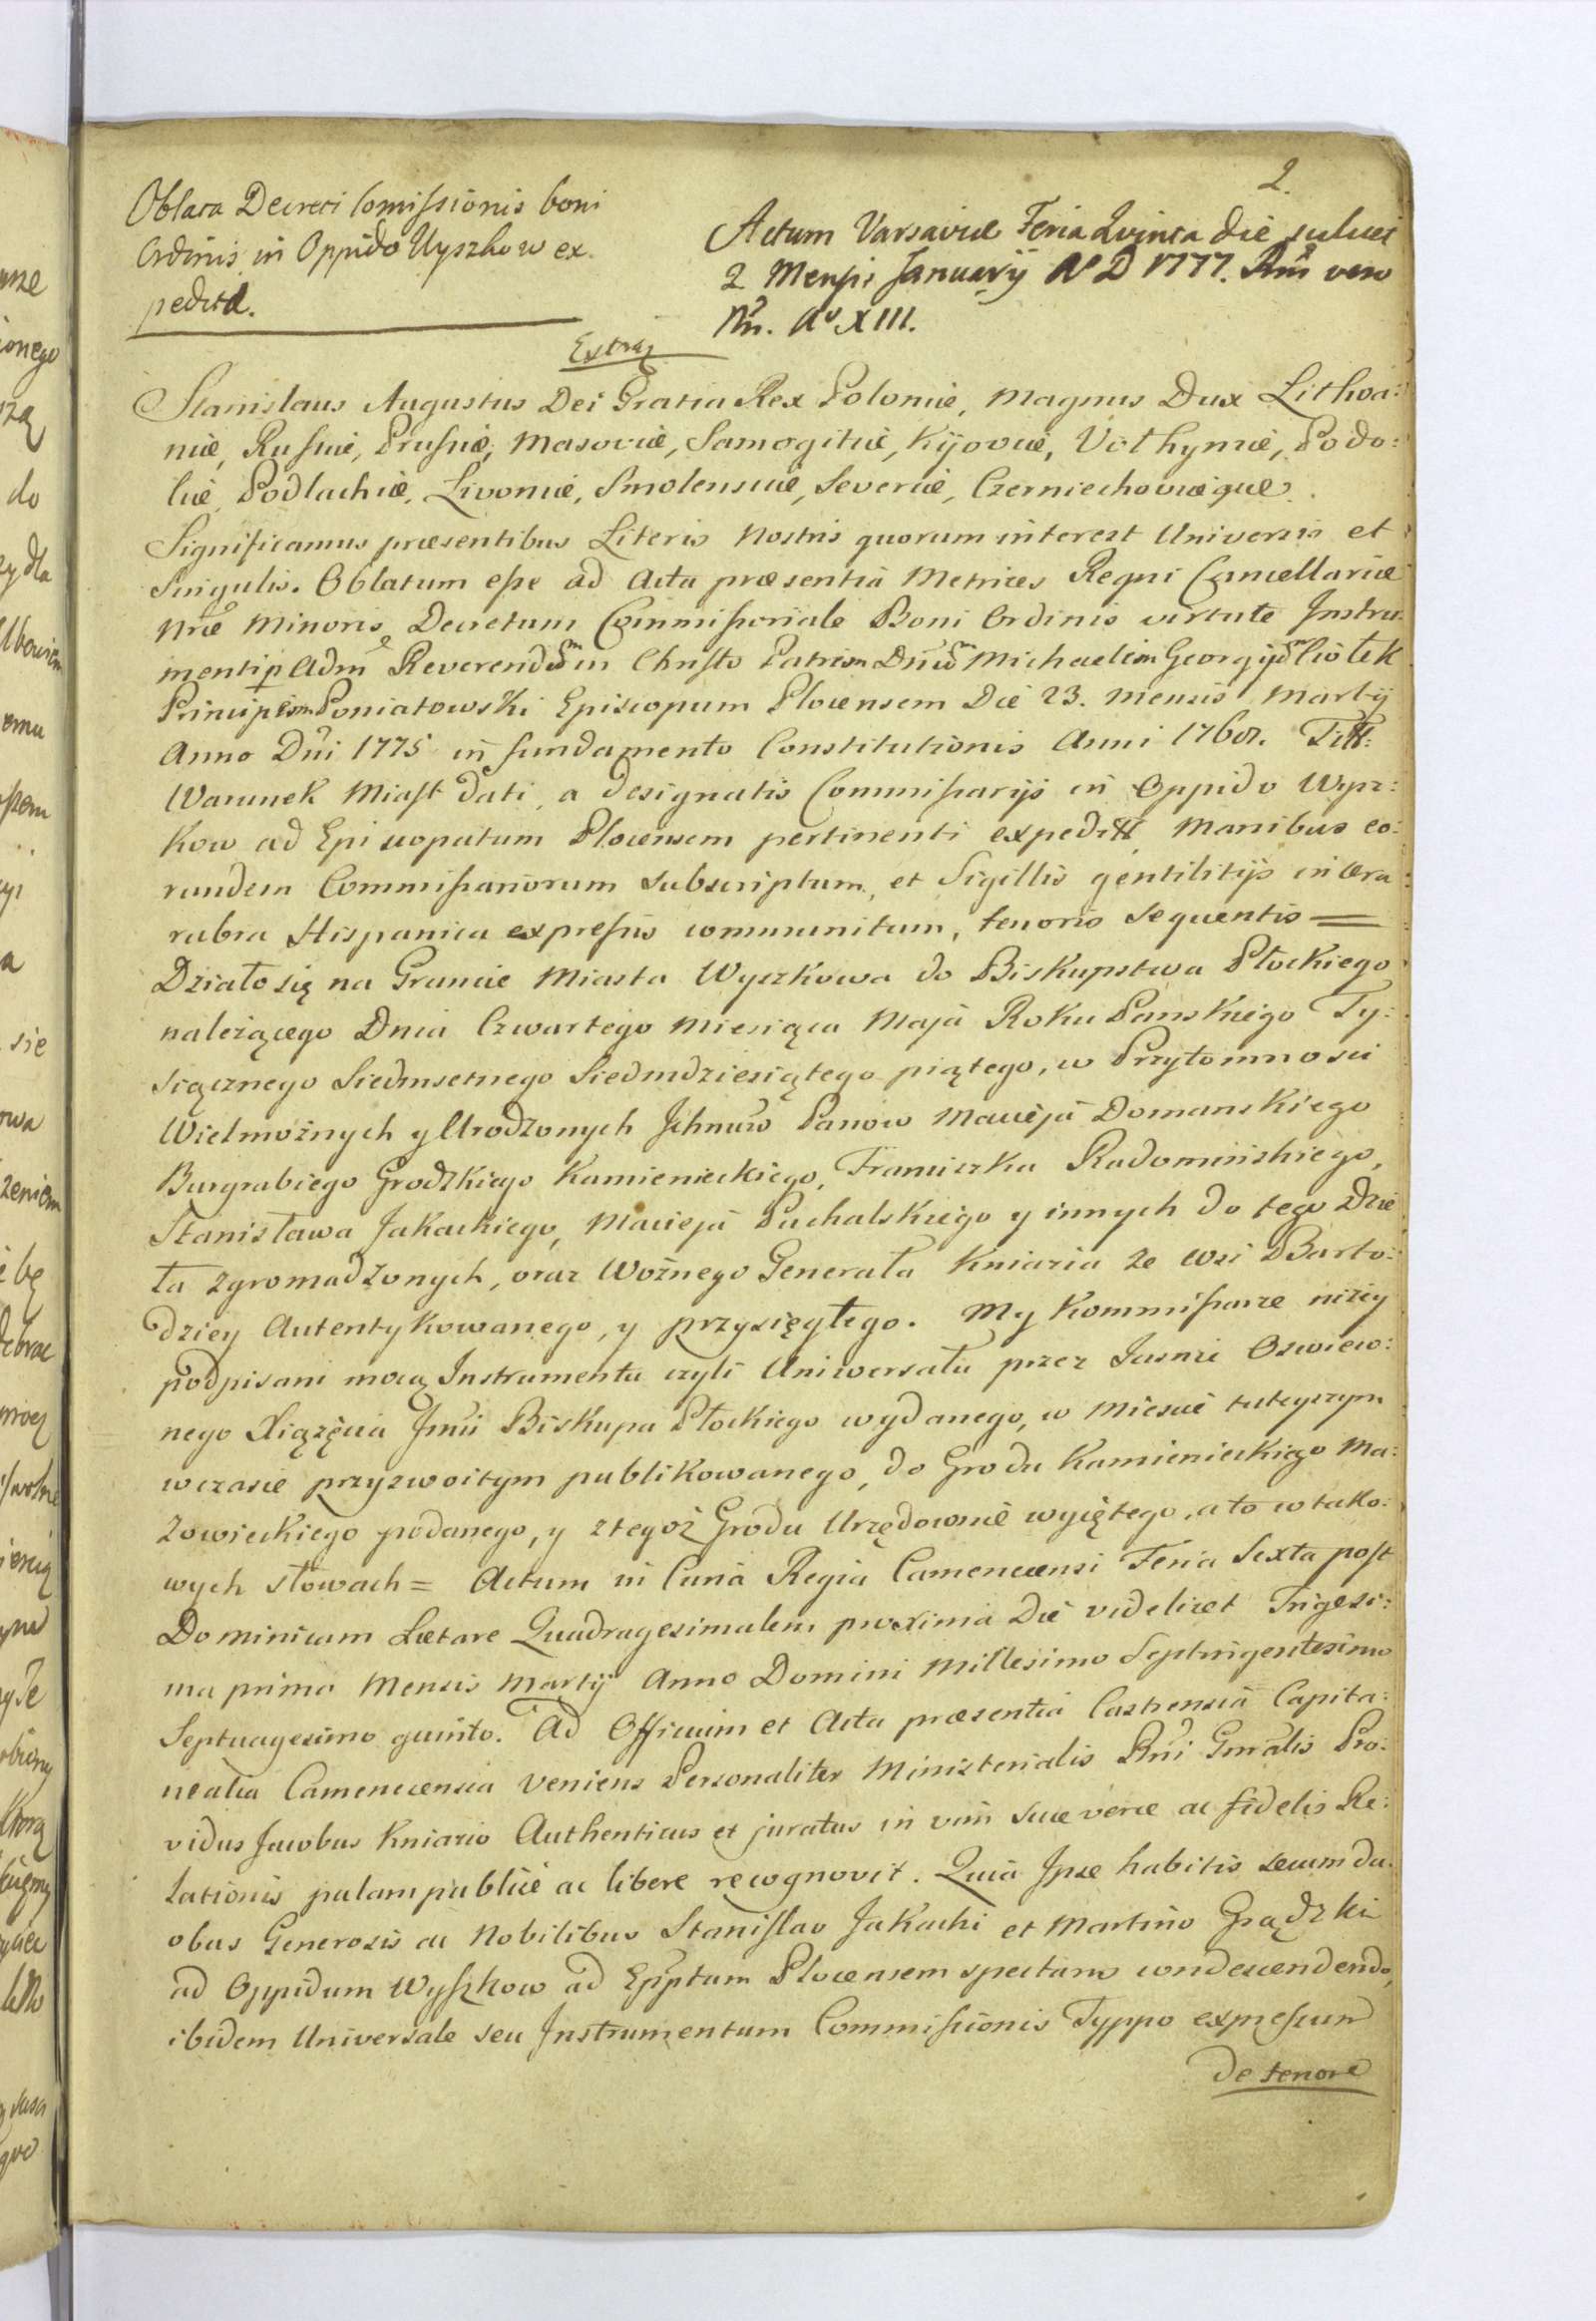 2.
Oblata Decreti Comissionis boni
Ordinis in Oppido Wyszkow ex
pediti.
Actum Varsaviæ Feria Qvinta die scilicet
2 Mensis Januarij A° D 1777. Rñi vero
Nri. A° XIII.
Extrag
Stanislaus Augustus Dei Gratia Rex Poloniæ, Magnus Dux Lithva:
niæ, Russiæ, Prussiæ, Masoviæ, Samogitiæ, Kijoviæ, Volhyniæ, Podo:
liæ, Podlachiæ, Livoniæ, Smolensciæ, Severiæ, Czerniechoviæque.
Significamus præsentibus Literis Nostris quorum interest Universis et
Singulis. Oblatum esse ad Acta præsentia Metrices Regni Cancellariæ
Nræ Minoris, Decretum Commissoriale Boni Ordinis virtute Instru
menti p Adm Reverendum in Christo Patrem Dnum Michaelem Georgium Ciołek
Principem Poniatowski Episcopum Plocensem Die 23. mensis Martij
Anno Dñi 1775 in fundamento Constitutionis Anni 1768. Titt:
Warunek Miast dati, a designatis Commissarijs in Oppido Wysz:
kow ad Episcopatum Plocensem pertinenti expeditt, Manibus eo:
rundem Commissariorum subscriptum, et Sigillis gentilitijs in cera
rubra Hispanica expressis communitum, tenoris sequentis =
Działo się na Gruncie Miasta Wyszkowa do Biskupstwa Płockiego
należącego Dnia Czwartego Miesiąca Maja Roku Panskiego Ty:
siącznego Siedmsetnego Siedmdziesiątego piątego, w Przytomnosci
Wielmożnych y Urodzonych Ichmciów Panow Macieja Domanskiego
Burgrabiego Grodzkiego Kamienieckiego, Franciszka Radominskiego,
Stanisława Jakackiego, Macieja Puchalskiego y innych do tego Dzie
ła zgromadzonych, oraz Woźnego Generała Kniazia ze Wsi Barto:
dziey Autentykowanego, y przysięgłego. My Kommissarze niżey
podpisani mocą Instrumentu czyli Uniwersału przez Jasnie Oswiew:
nego Xiążęcia Jmći Biskupa Płockiego wydanego, w Miescie tuteyszym
w czasie przyzwoitym publikowanego, do Grodu Kamienieckiego Ma:
zowieckiego podanego, y z tegoż Grodu Urzędownie wyiętego, a to w tako:
wych słowach = Actum in Curia Regia Camenecensi Feria Sexta post
Dominicam Lætare Quadragesimalem proxima Die videlicet Trigesi:
ma prima Mensis Martij Anno Domini Millesimo Septingentesimo
Septuagesimo quinto. Ad Officium et Acta præsentia Castrensia Capita:
nealia Camenecensia veniens Personaliter Ministerialis Rñi Gnralis Pro:
vidus Jacobus Kniazio Authenticus et juratus in vim suæ veræ ac fidelis Re:
lationis palam publice ac libere recognovit. Quia Ipse habitis secum du:
obus Generosis ac Nobilibus Stanislao Jakacki et Martino Grądzki
ad Oppidum Wyszkow ad Epptum Plocensem spectans condescendendo,
ibidem Universale seu Instrumentum Commissionis Typpo expressum
de tenore